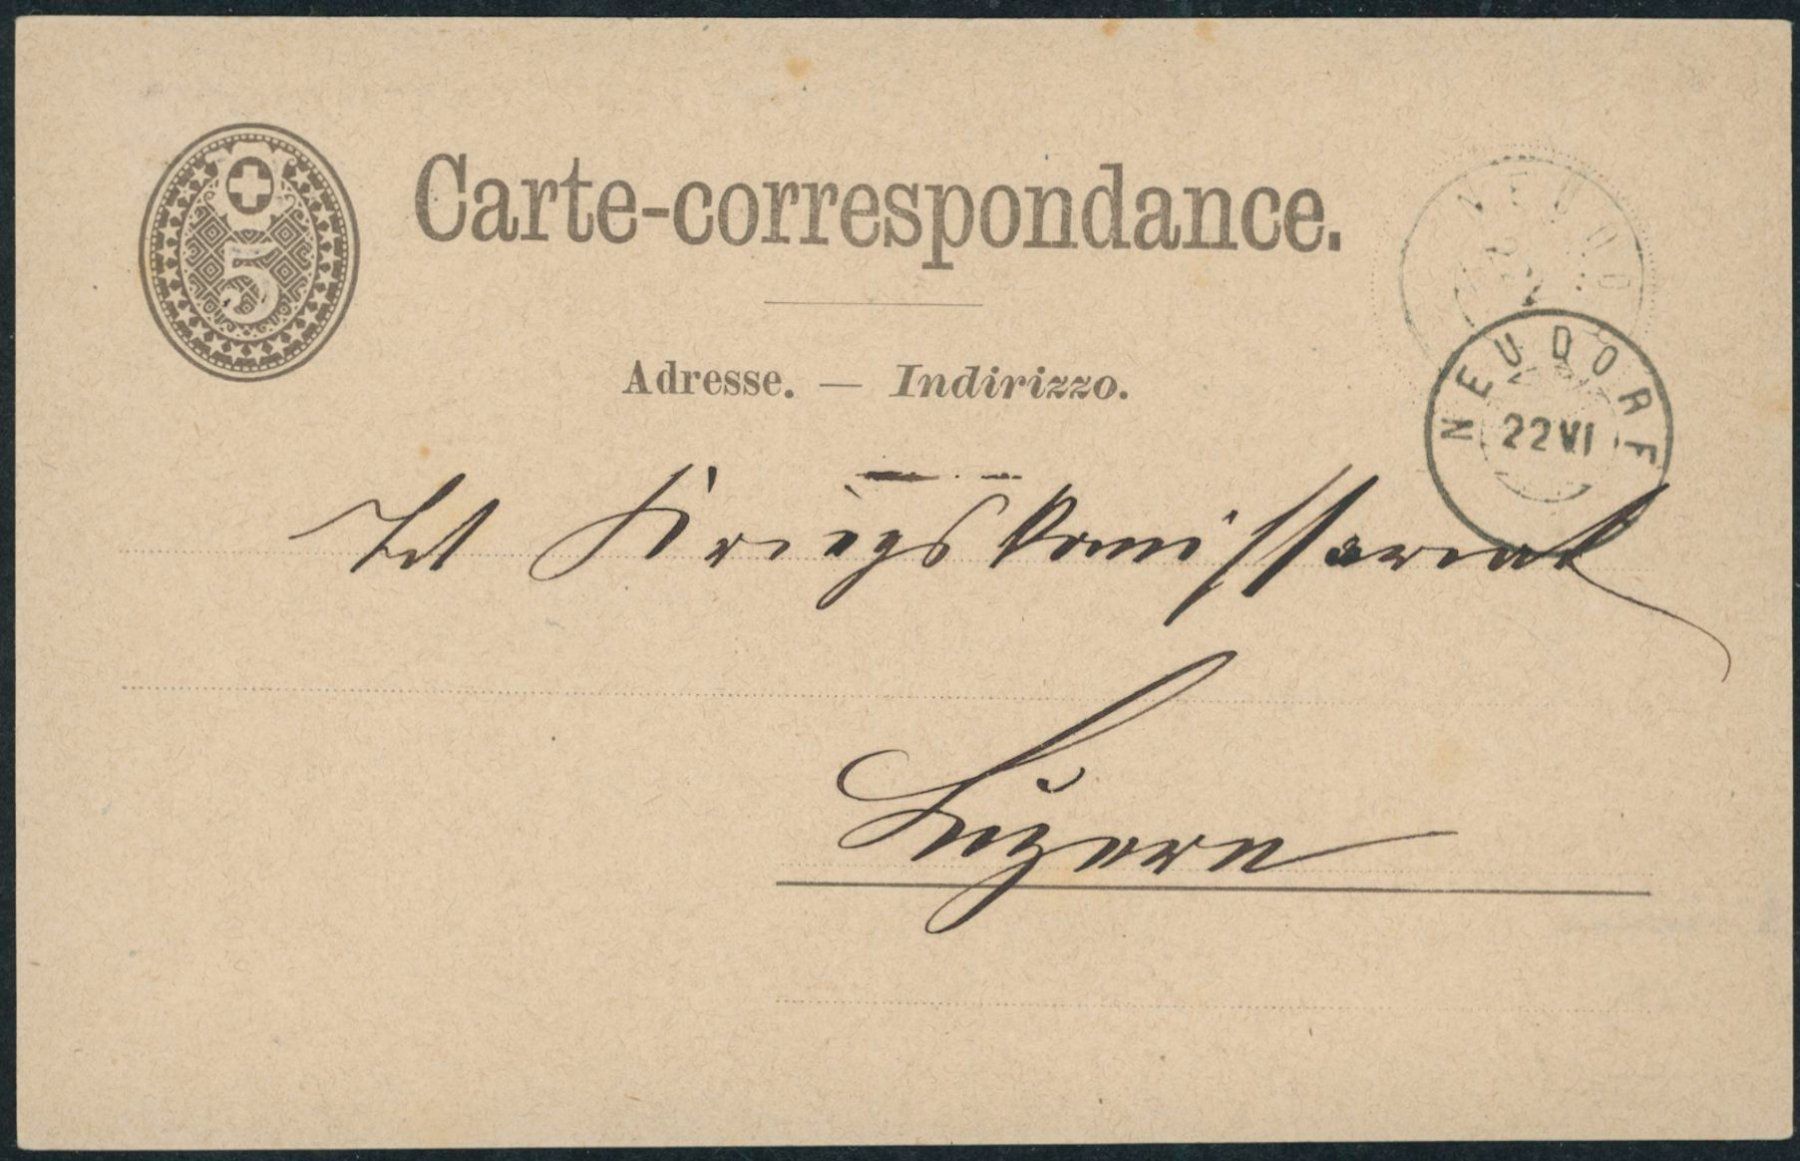 5
Carte-correspondance.
NEUDO
Adresse. — Indirizzo.
NEUDORF
22 VI
Tit Kriegskomissariat
Luzern